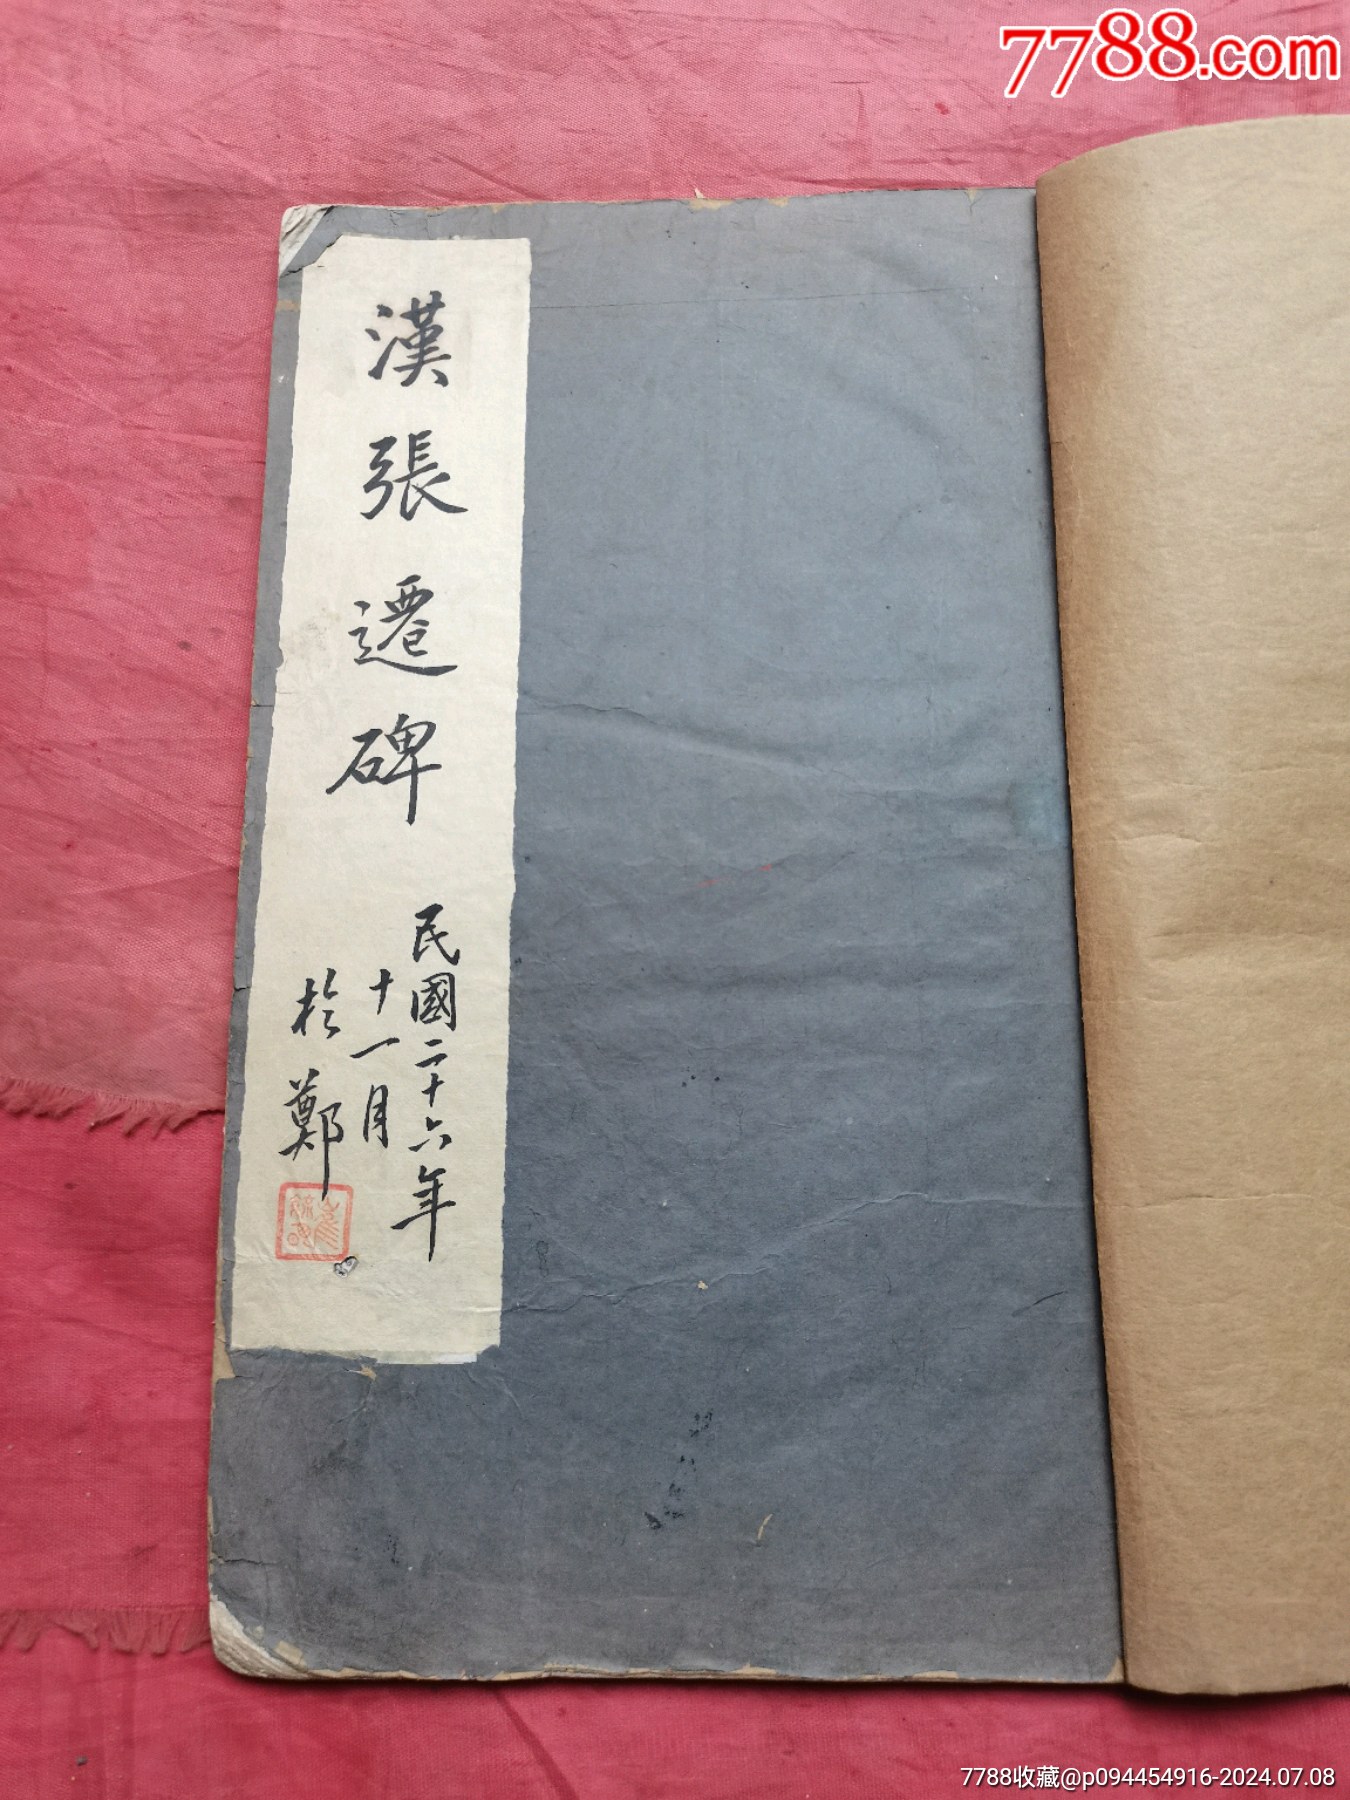 7788.com
漢張遷碑
民國二十六年
十一月
於鄭
7788收藏@p094454916-2024.07.08